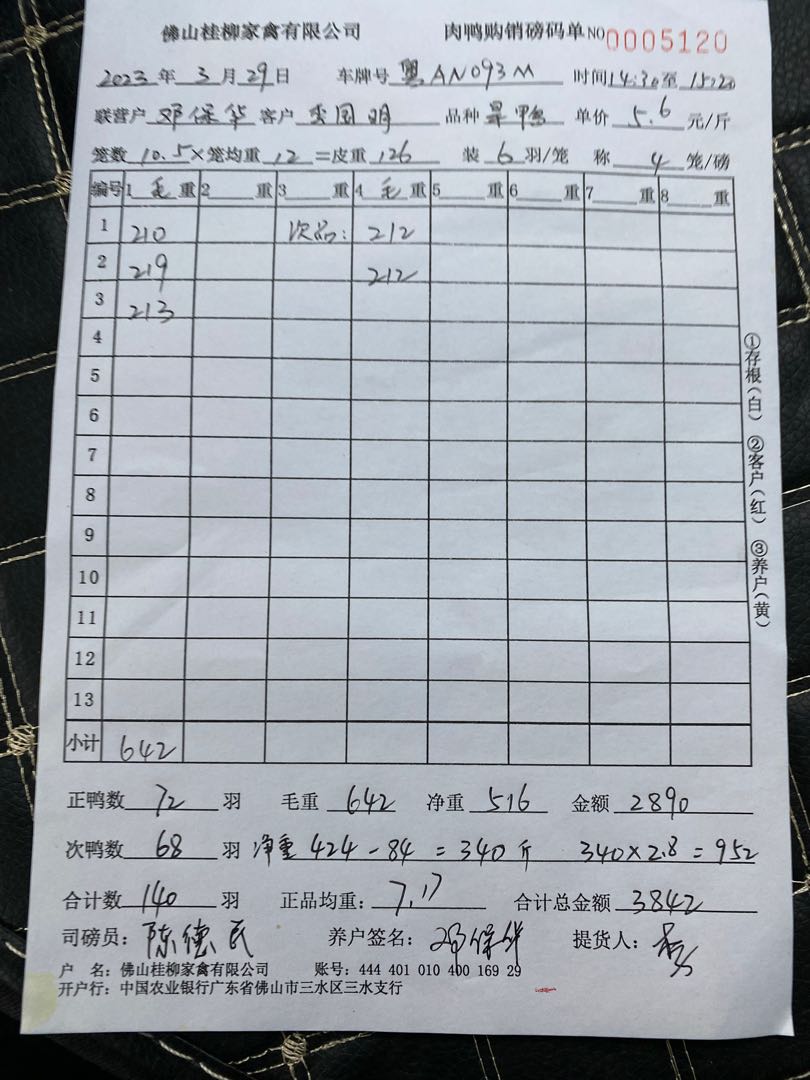 佛山桂柳家禽有限公司 肉鸭购销磅码单 NO 0005120
2023年3月29日 车牌号 粤AN093M 时间 14:30至15:20
联营户 邓保华 客户 李国明 品种 旱鸭 单价 5.6 元/斤
笼数 10.5×笼均重 12 =皮重 126 装 6 羽/笼 称 4 笼/磅
编号 1 毛 重 2 重 3 重 4 毛 重 5 重 6 重 7 重 8 重
1 210 次品: 212
2 219 212
3 213
4
5
6
7
8
9
10
11
12
13
小计 642
正鸭数 72 羽 毛重 642 净重 516 金额 2890
次鸭数 68 羽 净重 424-84=340斤 340×2.8=952
合计数 140 羽 正品均重: 7.17 合计总金额 3842
司磅员: 陈德民 养户签名: 邓保华 提货人:
户 名: 佛山桂柳家禽有限公司 账号: 444 401 010 400 169 29
开户行: 中国农业银行广东省佛山市三水区三水支行
①存根(白) ②客户(红) ③养户(黄)